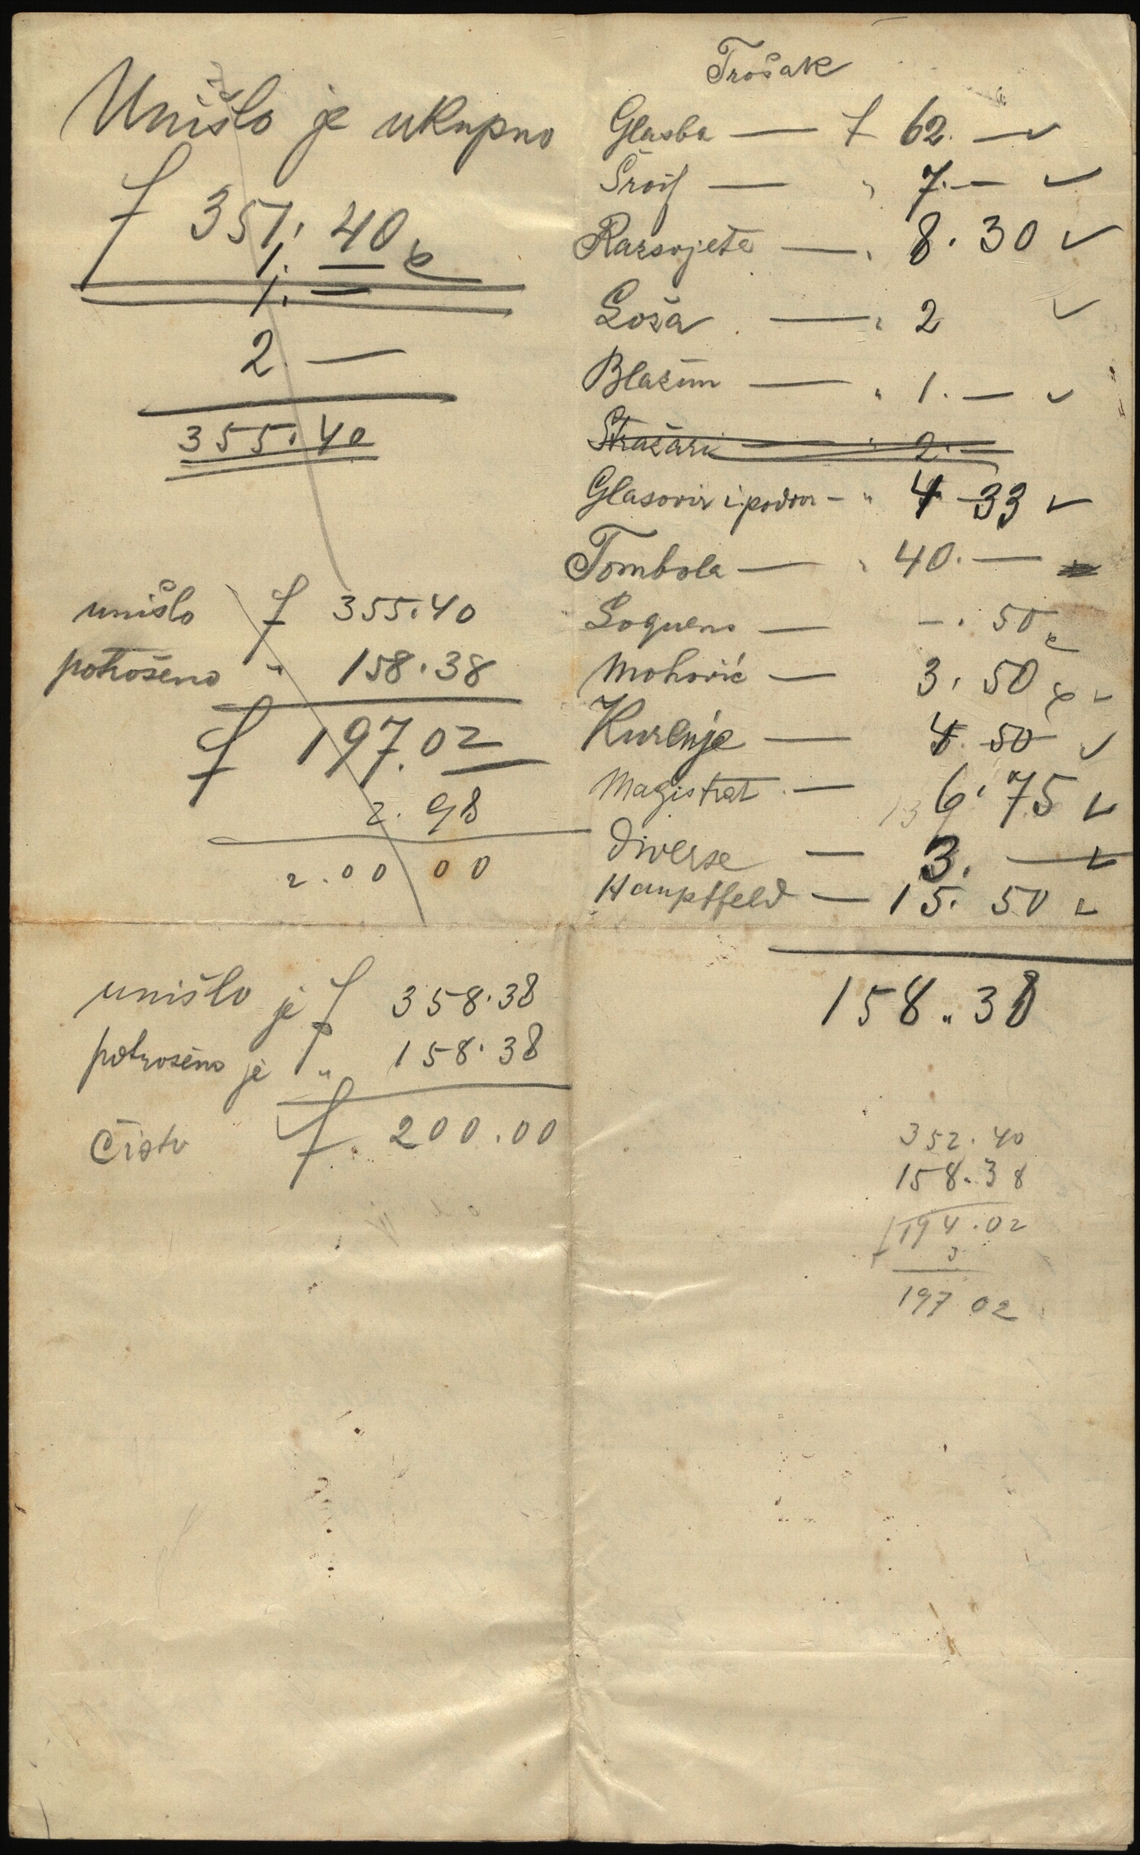 Unišlo je ukupno
f 351. 40
1. —
1. —
2. —
355.40
unišlo f 355.40
potrošeno " 158.38
f 197.02
2.98
2.00 00
unišlo je f 358.38
potrošeno je " 158.38
Čisto f. 200.00
Trošak
Glasba — f 62. —
— " 7. —
Razsvjeta — " 8.30
Loža — " 2
Blažun — " 1. —
Stražari — " 2. —
Glasovir i podvor — " 4 33
Tombola — " 40. —
— —. 50
Mohorić — 3. 50
Kurenje — 4. 50
Magistrat — 6. 75
Diverse — 3. —
Hauptfeld — 15. 50
158 " 38
352.40
158.38
194.02
3
197 02